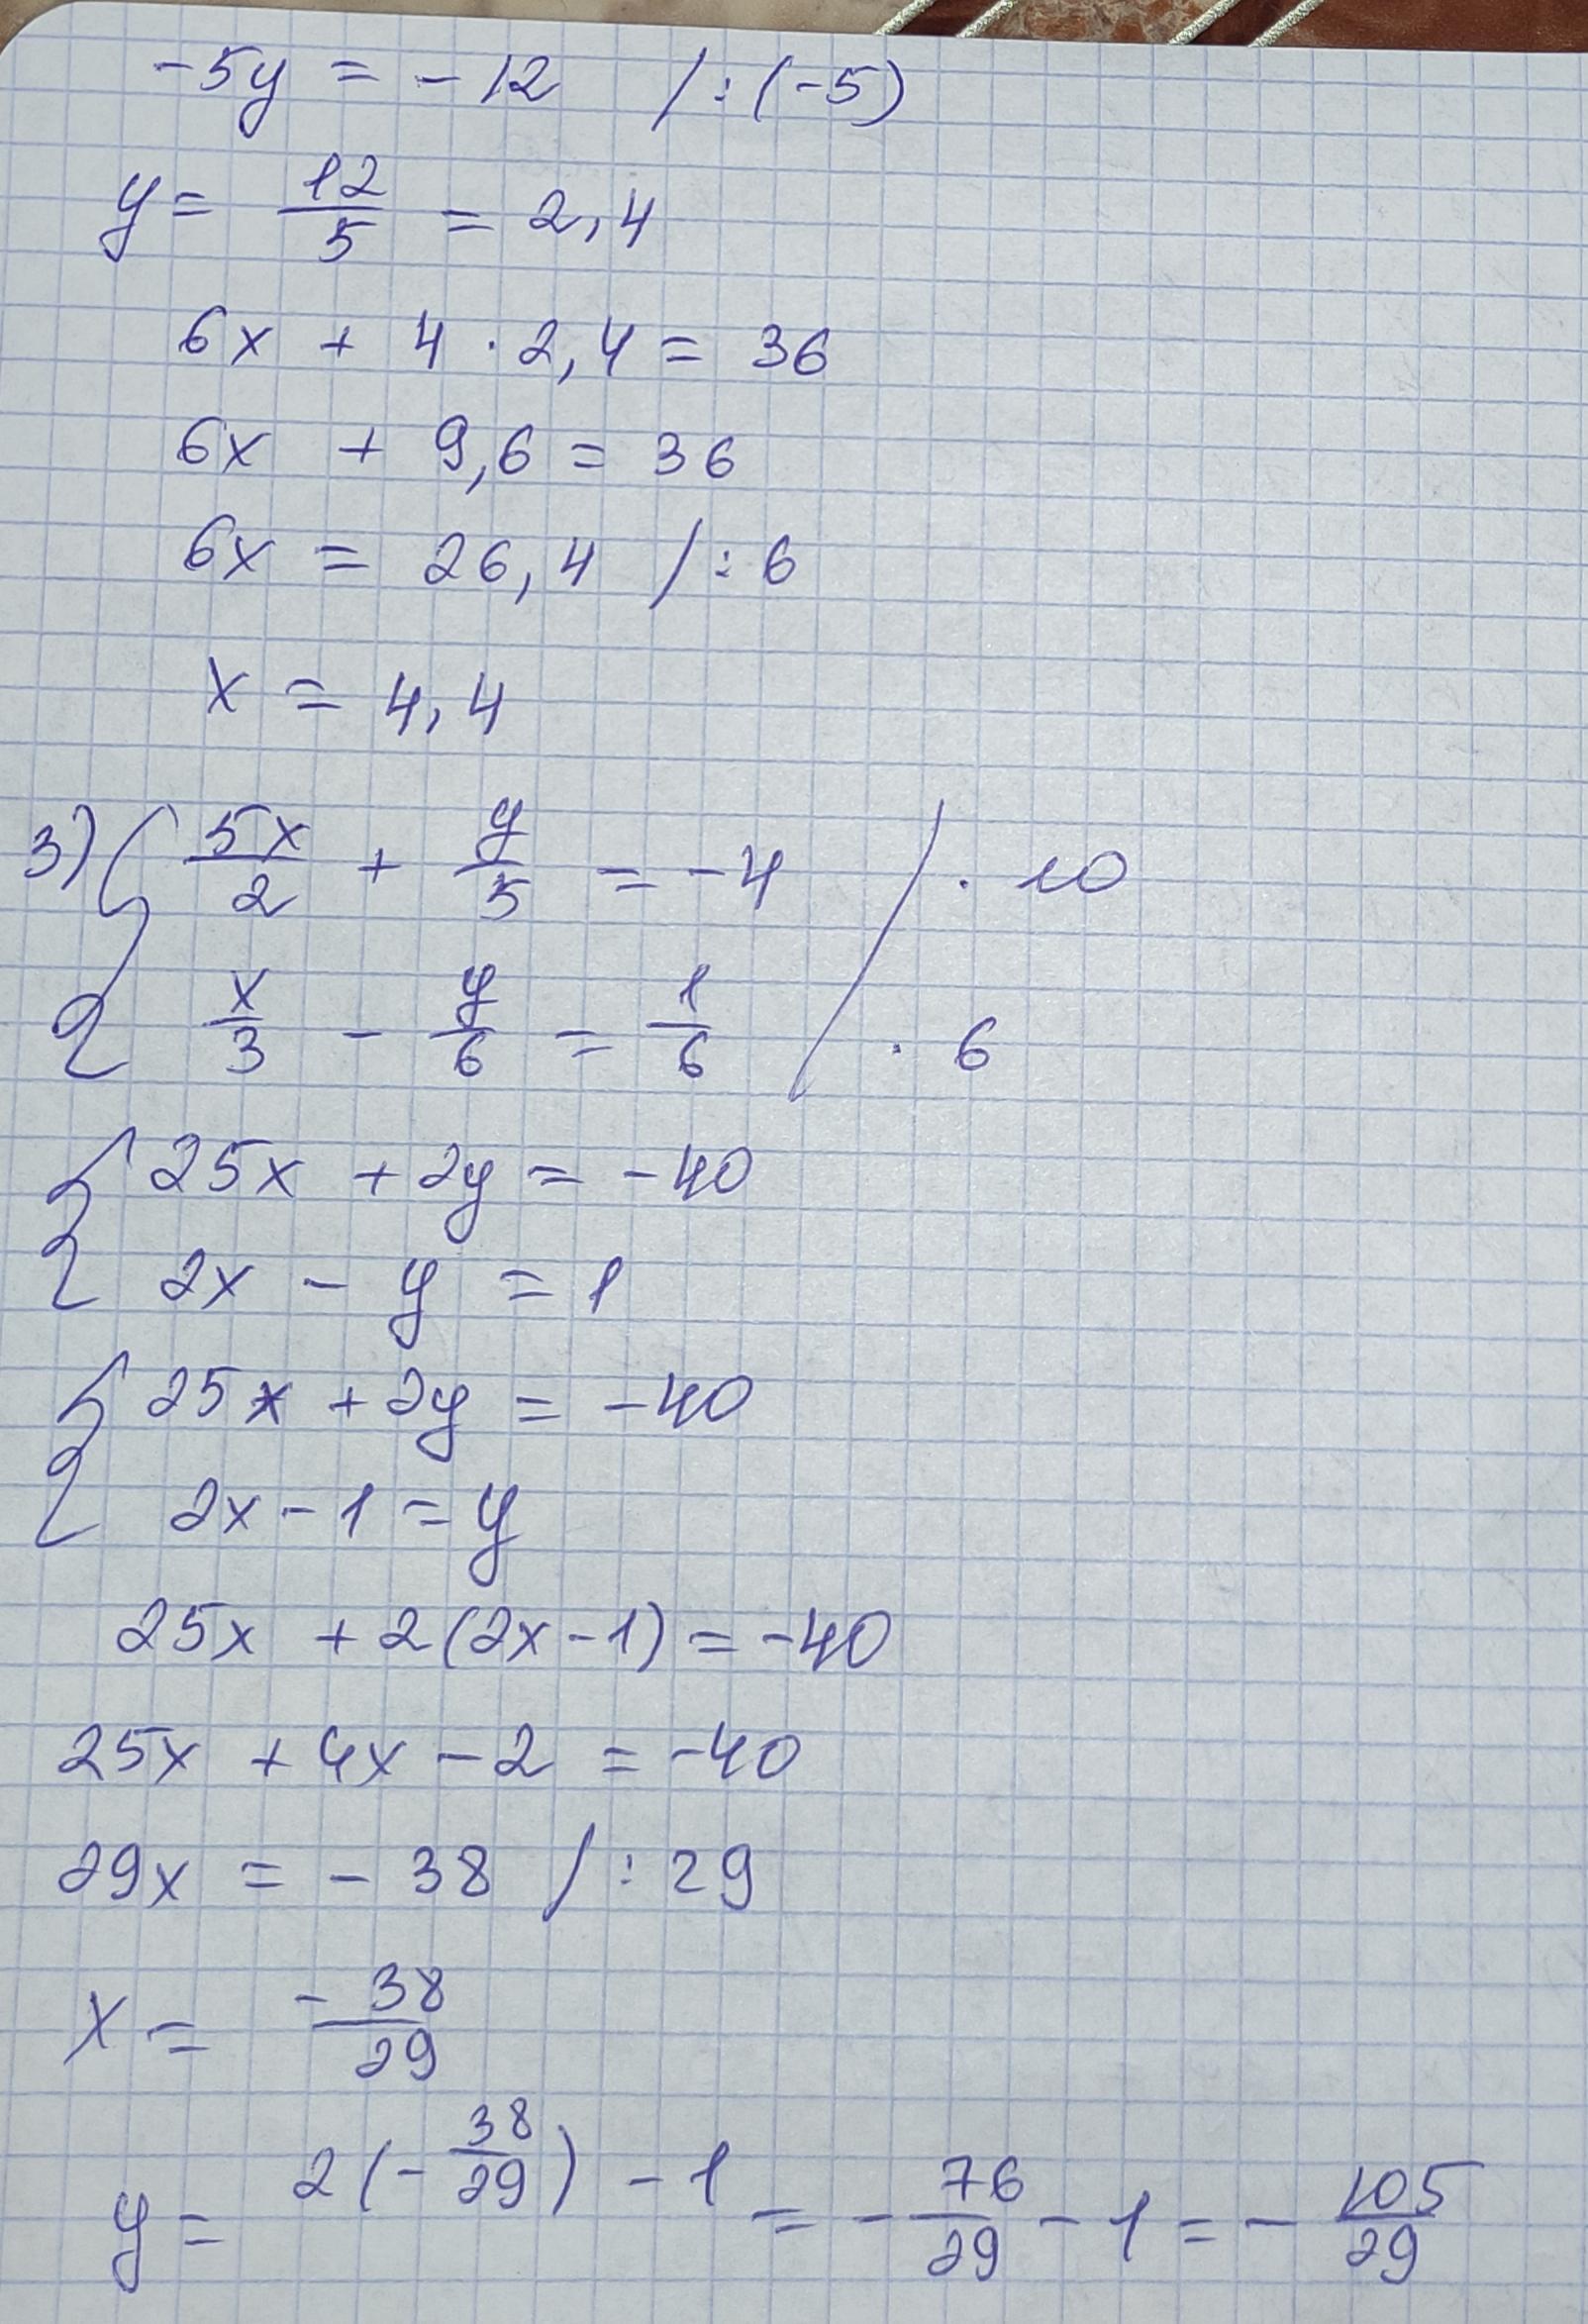 -5y = -12 /:(-5)
y = 12/5 = 2,4
6x + 4 · 2,4 = 36
6x + 9,6 = 36
6x = 26,4 /:6
x = 4,4
3) { 5x/2 + y/5 = -4 / · 10
x/3 - y/6 = 1/6 / · 6
{ 25x + 2y = -40
2x - y = 1
{ 25x + 2y = -40
2x - 1 = y
25x + 2(2x - 1) = -40
25x + 4x - 2 = -40
29x = - 38 /:29
x = -38/29
y = 2(-38/29) - 1 = -76/29 - 1 = -105/29